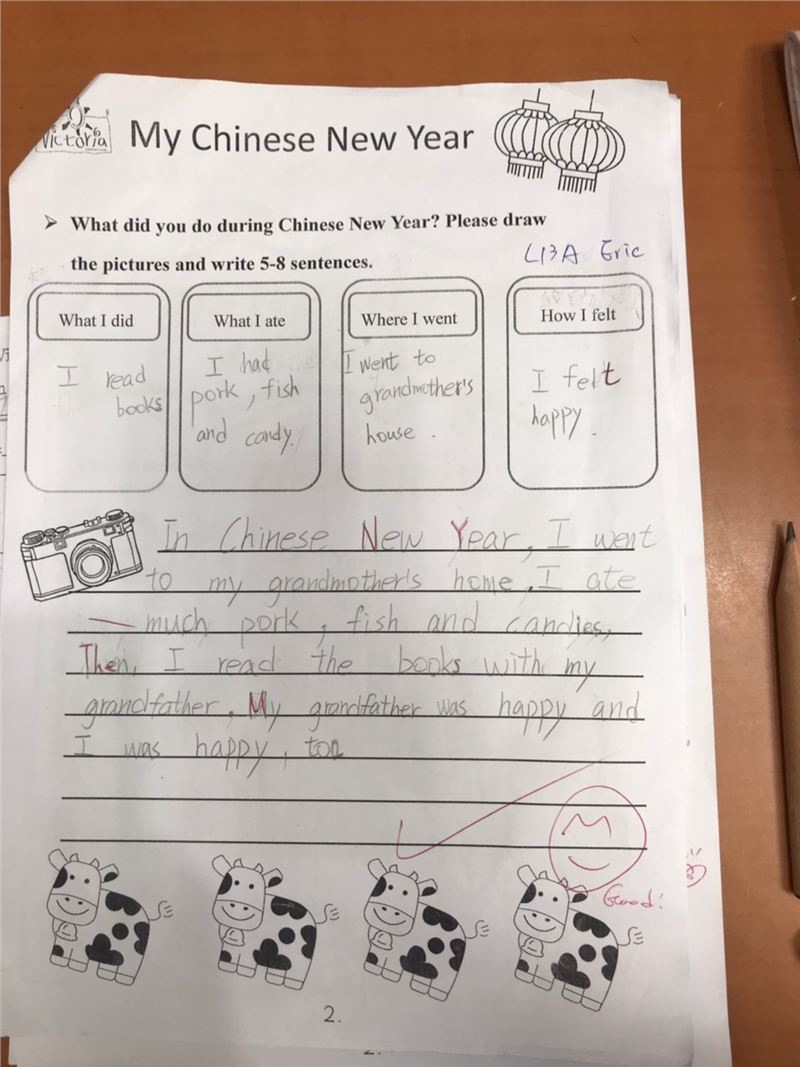 Victoria
My Chinese New Year
➤ What did you do during Chinese New Year? Please draw
the pictures and write 5-8 sentences.
L13A Eric
What I did
I read
books
What I ate
I had
pork, fish
and candy.
Where I went
I went to
grandmother's
house.
How I felt
I felt
happy.
In Chinese New Year, I went
to my grandmother's home. I ate
much pork, fish and candies,
Then, I read the books with my
grandfather. My grandfather was happy and
I was happy, too
Good!
2.